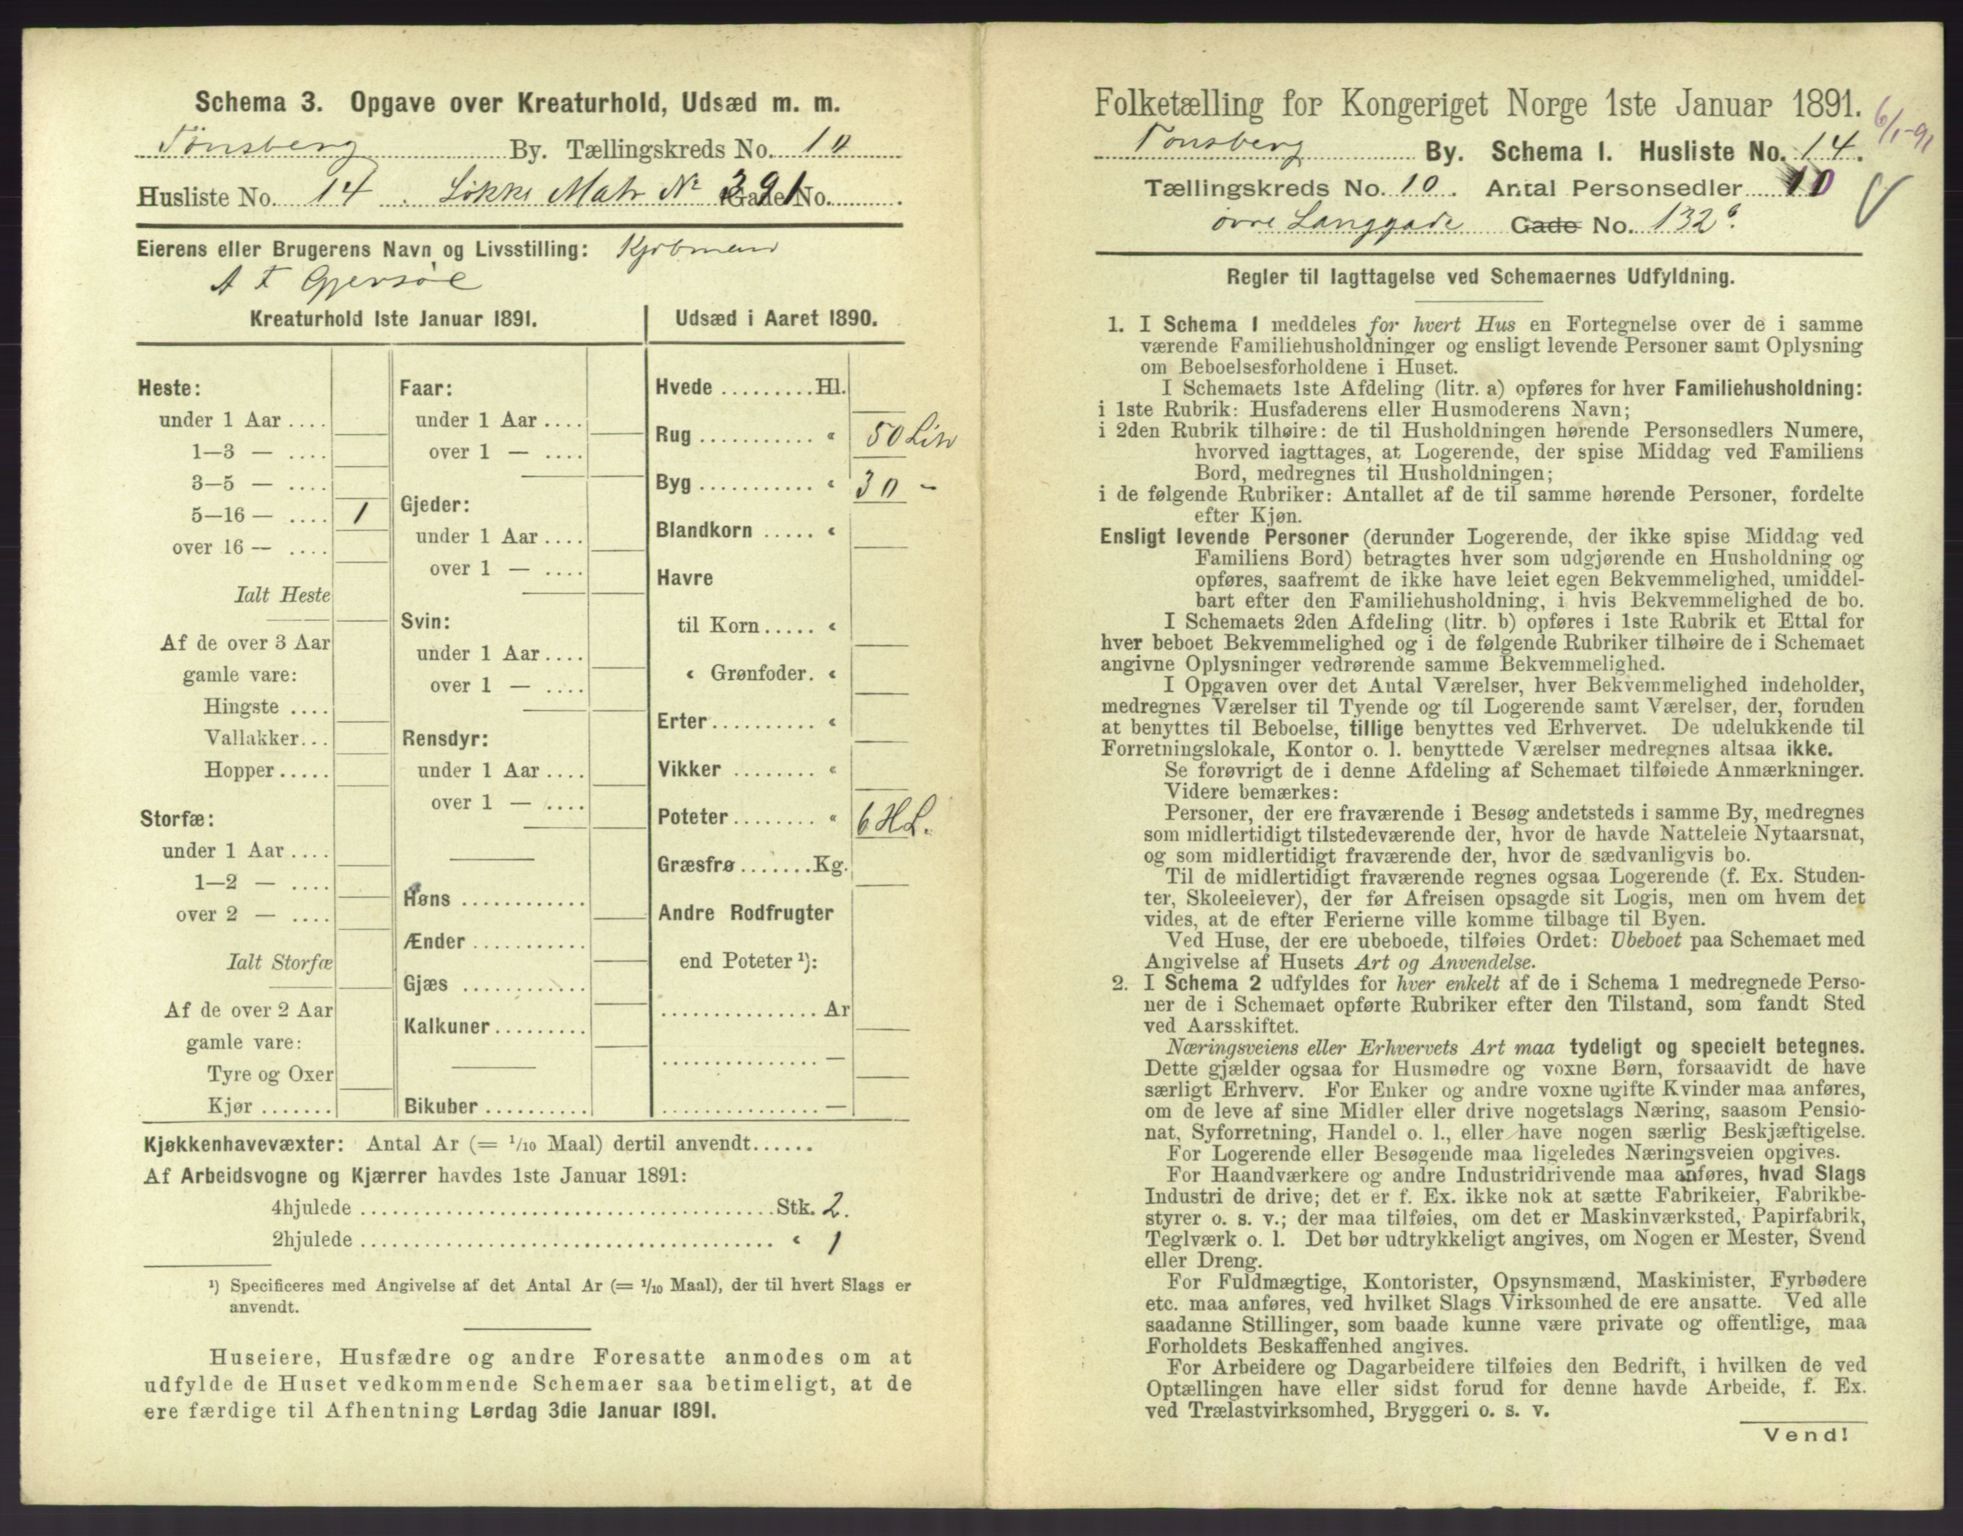 Schema 3. Opgave over Kreaturhold, Udsæd m. m.
Tönsberg By. Tællingskreds No. 10
Husliste No. 14. Løkke Matr No 391 Gade No.
Eierens eller Brugerens Navn og Livsstilling: Kjöbmand
A F Gjersöe
Kreaturhold 1ste Januar 1891.
Heste:
under 1 Aar ....
1—3 — ....
3—5 — ....
5—16 — .... 1
over 16 — ....
Ialt Heste
Af de over 3 Aar
gamle vare:
Hingste ....
Vallakker...
Hopper.....
Storfæ:
under 1 Aar....
1—2 — ....
over 2 — ....
Ialt Storfæ
Af de over 2 Aar
gamle vare:
Tyre og Oxer
Kjør.......
Faar:
under 1 Aar....
over 1 — ....
Gjeder:
under 1 Aar....
over 1 — ....
Svin:
under 1 Aar....
over 1 — ....
Rensdyr:
under 1 Aar....
over 1 — ....
Høns ............
Ænder ...........
Gjæs ............
Kalkuner.........
Bikuber..........
Udsæd i Aaret 1890.
Hvede .........Hl.
Rug ........... « 50 Litr
Byg ........... « 30 -
Blandkorn ..... «
Havre
til Korn..... «
« Grønfoder. «
Erter.......... «
Vikker ........ «
Poteter........ « 6 HL.
Græsfrø.......Kg.
Andre Rodfrugter
end Poteter ¹):
...............Ar
...............—
...............—
Kjøkkenhavevæxter: Antal Ar (= 1/10 Maal) dertil anvendt......
Af Arbeidsvogne og Kjærrer havdes 1ste Januar 1891:
4hjulede ......................................Stk. 2.
2hjulede ...................................... « 1
¹) Specificeres med Angivelse af det Antal Ar (= 1/10 Maal), der til hvert Slags er
anvendt.
Huseiere, Husfædre og andre Foresatte anmodes om at
udfylde de Huset vedkommende Schemaer saa betimeligt, at de
ere færdige til Afhentning Lørdag 3die Januar 1891.
Folketælling for Kongeriget Norge 1ste Januar 1891.
6/1-91
Tonsberg By. Schema 1. Husliste No. 14.
Tællingskreds No. 10. Antal Personsedler 10
övre Langgade Gade No. 132b.
Regler til Iagttagelse ved Schemaernes Udfyldning.
1. I Schema 1 meddeles for hvert Hus en Fortegnelse over de i samme
værende Familiehusholdninger og ensligt levende Personer samt Oplysning
om Beboelsesforholdene i Huset.
I Schemaets 1ste Afdeling (litr. a) opføres for hver Familiehusholdning:
i 1ste Rubrik: Husfaderens eller Husmoderens Navn;
i 2den Rubrik tilhøire: de til Husholdningen hørende Personsedlers Numere,
hvorved iagttages, at Logerende, der spise Middag ved Familiens
Bord, medregnes til Husholdningen;
i de følgende Rubriker: Antallet af de til samme hørende Personer, fordelte
efter Kjøn.
Ensligt levende Personer (derunder Logerende, der ikke spise Middag ved
Familiens Bord) betragtes hver som udgjørende en Husholdning og
opføres, saafremt de ikke have leiet egen Bekvemmelighed, umiddel-
bart efter den Familiehusholdning, i hvis Bekvemmelighed de bo.
I Schemaets 2den Afdeling (litr. b) opføres i 1ste Rubrik et Ettal for
hver beboet Bekvemmelighed og i de følgende Rubriker tilhøire de i Schemaet
angivne Oplysninger vedrørende samme Bekvemmelighed.
I Opgaven over det Antal Værelser, hver Bekvemmelighed indeholder,
medregnes Værelser til Tyende og til Logerende samt Værelser, der, foruden
at benyttes til Beboelse, tillige benyttes ved Erhvervet. De udelukkende til
Forretningslokale, Kontor o. l. benyttede Værelser medregnes altsaa ikke.
Se forøvrigt de i denne Afdeling af Schemaet tilføiede Anmærkninger.
Videre bemærkes:
Personer, der ere fraværende i Besøg andetsteds i samme By, medregnes
som midlertidigt tilstedeværende der, hvor de havde Natteleie Nytaarsnat,
og som midlertidigt fraværende der, hvor de sædvanligvis bo.
Til de midlertidigt fraværende regnes ogsaa Logerende (f. Ex. Studen-
ter, Skoleelever), der før Afreisen opsagde sit Logis, men om hvem det
vides, at de efter Ferierne ville komme tilbage til Byen.
Ved Huse, der ere ubeboede, tilføies Ordet: Ubeboet paa Schemaet med
Angivelse af Husets Art og Anvendelse.
2. I Schema 2 udfyldes for hver enkelt af de i Schema 1 medregnede Perso-
ner de i Schemaet opførte Rubriker efter den Tilstand, som fandt Sted
ved Aarsskiftet.
Næringsveiens eller Erhvervets Art maa tydeligt og specielt betegnes.
Dette gjælder ogsaa for Husmødre og voxne Børn, forsaavidt de have
særligt Erhverv. For Enker og andre voxne ugifte Kvinder maa anføres,
om de leve af sine Midler eller drive nogetslags Næring, saasom Pensio-
nat, Syforretning, Handel o. l., eller have nogen særlig Beskjæftigelse.
For Logerende eller Besøgende maa ligeledes Næringsveien opgives.
For Haandværkere og andre Industridrivende maa anføres, hvad Slags
Industri de drive; det er f. Ex. ikke nok at sætte Fabrikeier, Fabrikbe-
styrer o. s. v.; der maa tilføies, om det er Maskinværksted, Papirfabrik,
Teglværk o. l. Det bør udtrykkeligt angives, om Nogen er Mester, Svend
eller Dreng.
For Fuldmægtige, Kontorister, Opsynsmænd, Maskinister, Fyrbødere
etc. maa anføres, ved hvilket Slags Virksomhed de ere ansatte. Ved alle
saadanne Stillinger, som baade kunne være private og offentlige, maa
Forholdets Beskaffenhed angives.
For Arbeidere og Dagarbeidere tilføies den Bedrift, i hvilken de ved
Optællingen have eller sidst forud for denne havde Arbeide, f. Ex.
ved Trælastvirksomhed, Bryggeri o. s. v.
Vend!